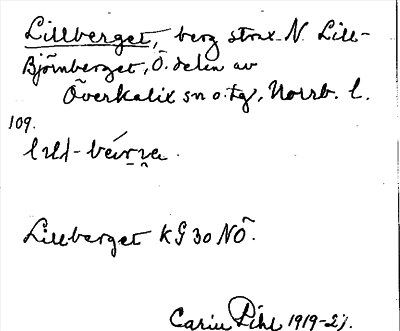 Lillberget, berg strax N. Lill-
Björnberget, Ö. delen av
Överkalix sn o. tg, Norrb. l.
109.
Lillberget KG 30 NÖ.
Carin Pihl 1919-27.